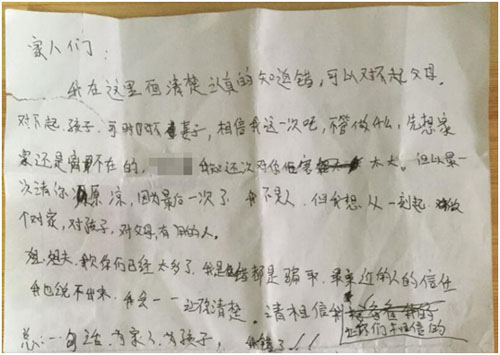 家人们：
我在这里面清楚认真的知道错，可以对不起父母，
对不起，孩子，可对不妻子，相信我这一次吧，不管做什么，先想家
家还是离不在的，我知这次对你伤害太大。但以最一
次请你原凉，因为最后一次了，我不是人，但我想从一刻起做
个对家，对孩子，对父母有用的人。
姐，姐夫，我欠你们已经太多了，我是都是骗取，最亲近的人的信任
我也说不出来，我会一一还清楚。请相信我
让我们相信的
总：一句话，为家人为孩子，我错了！！